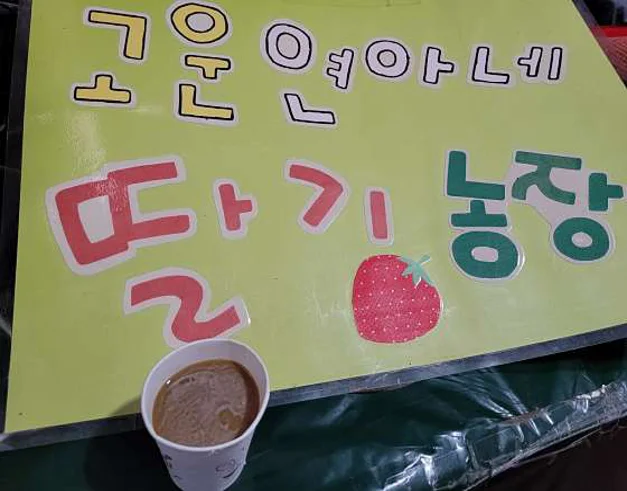 고운연아네
딸기 농장